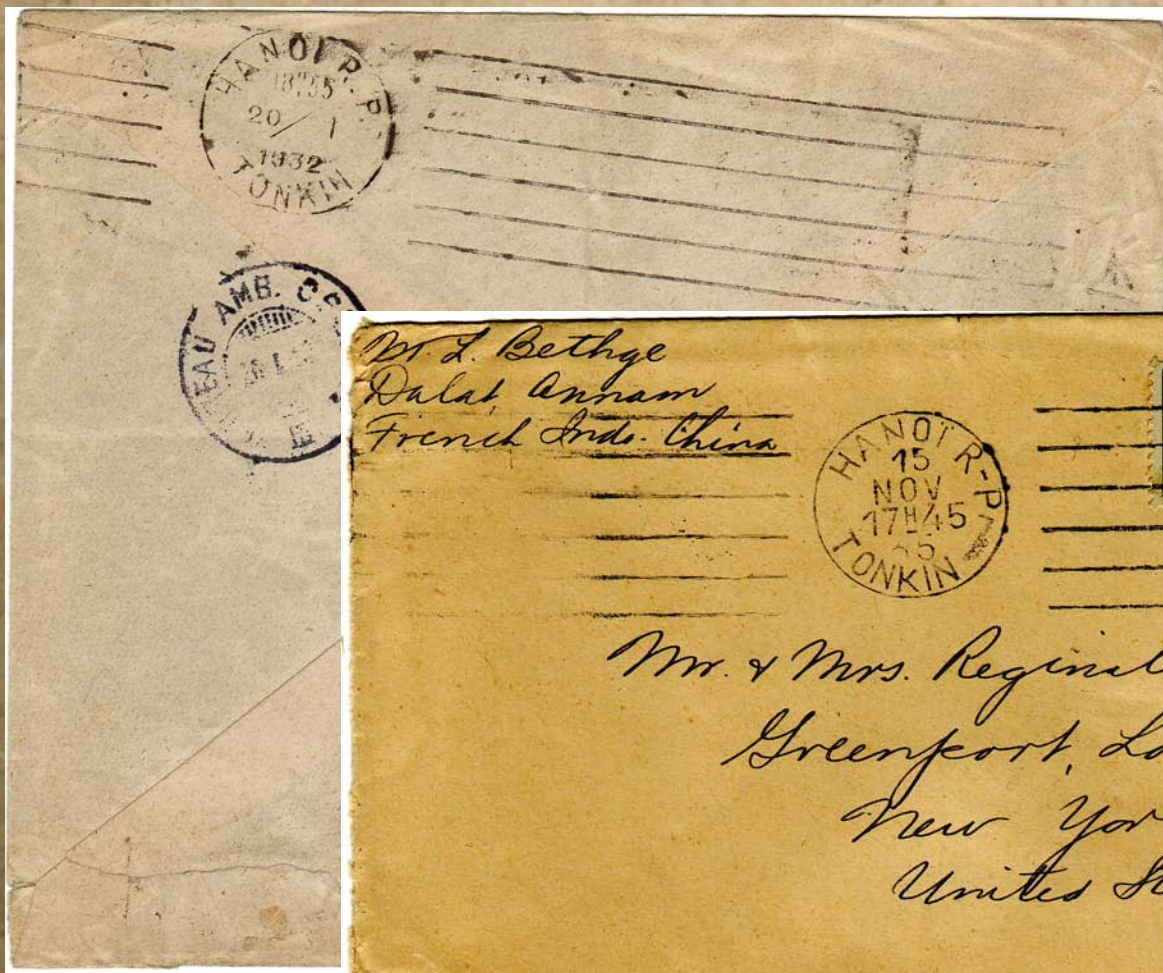 HANOI R.P.
18H55
20/1
1932
TONKIN
BUREAU AMB.
M. L. Bethge
Dalat Annam
French Indo-China
HANOI R-P
15
NOV
17H45
TONKIN
Mr. & Mrs. Reginal
Greenport, Lo
New Yor
United St